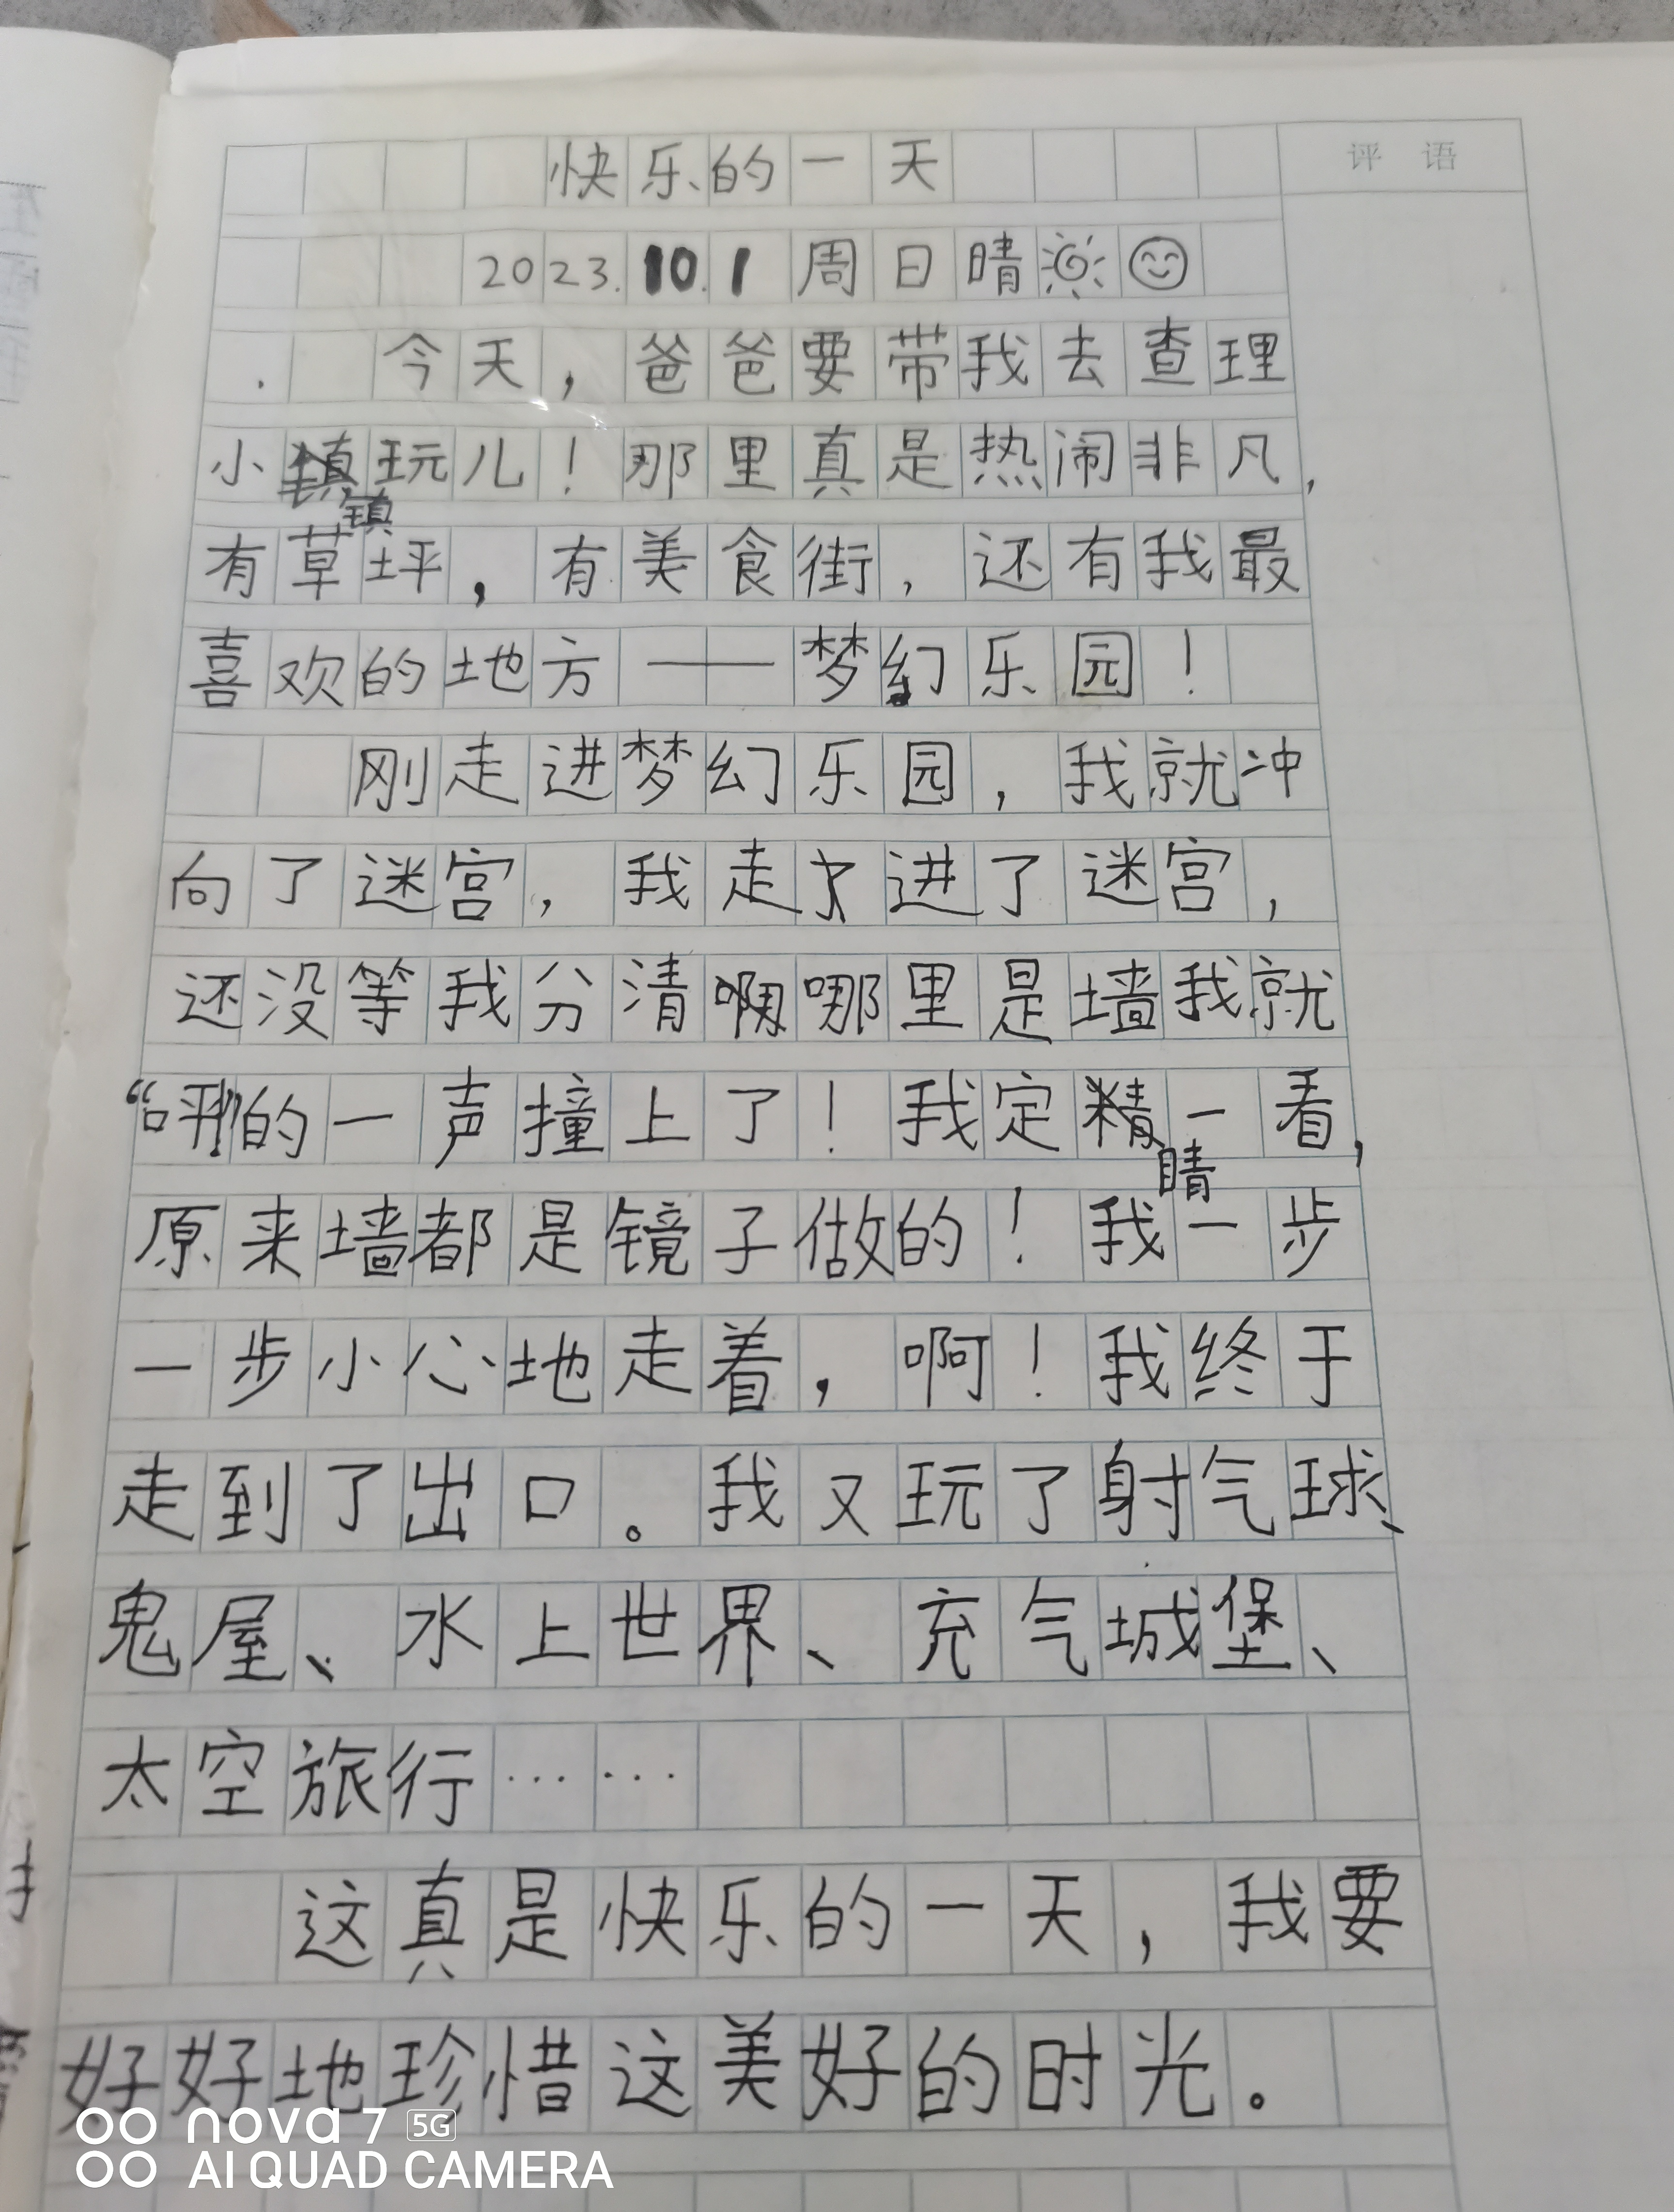 快乐的一天
评语
2023.10.1 周日晴
今天，爸爸要带我去查理
小镇玩儿！那里真是热闹非凡，
有草坪，有美食街，还有我最
喜欢的地方——梦幻乐园！
刚走进梦幻乐园，我就冲
向了迷宫，我走进了迷宫，
还没等我分清哪里是墙我就
“呯”的一声撞上了！我定睛一看，
原来墙都是镜子做的！我一步
一步小心地走着，啊！我终于
走到了出口。我又玩了射气球、
鬼屋、水上世界、充气城堡、
太空旅行……
这真是快乐的一天，我要
好好地珍惜这美好的时光。
nova 7 5G
AI QUAD CAMERA